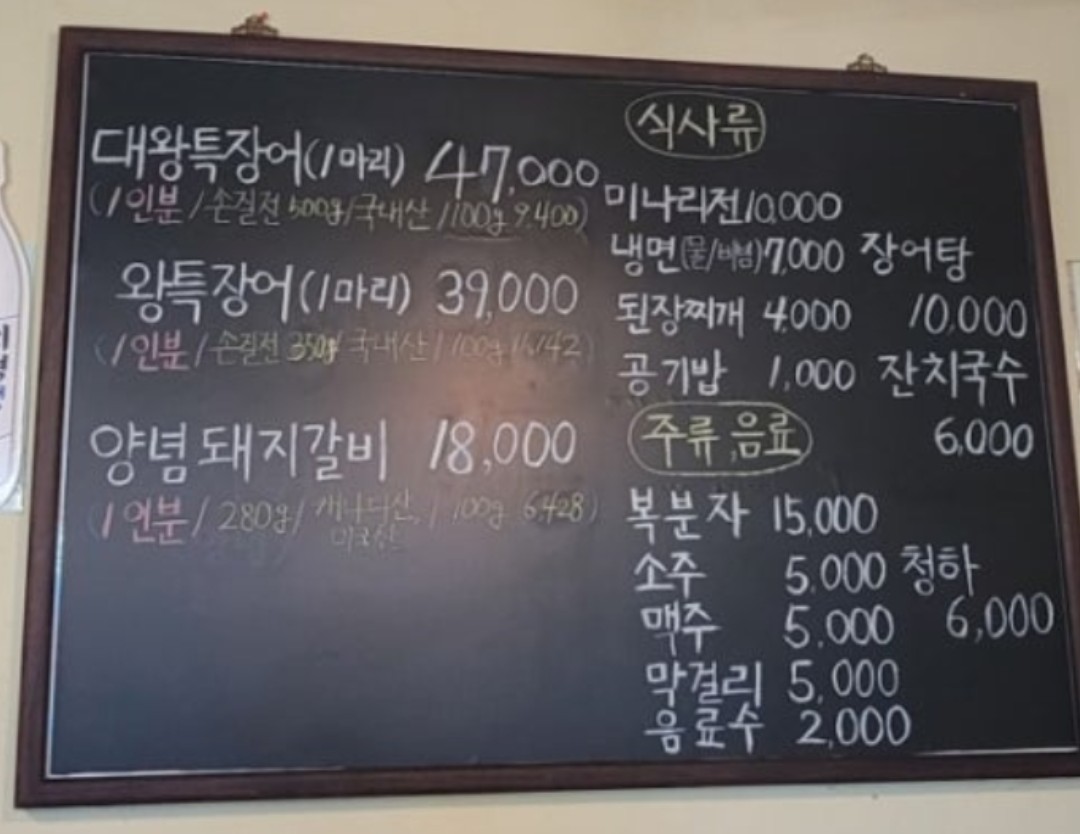 대왕특장어(1마리) 47,000
(1인분/손질전 500g/국내산/100g 9,400)
왕특장어(1마리) 39,000
(1인분/손질전 350g/국내산/100g 11,142)
양념돼지갈비 18,000
(1인분/280g/캐나다산,/100g 6,428)
미국산
식사류
미나리전 10,000
냉면(물/비빔) 7,000 장어탕
된장찌개 4,000 10,000
공기밥 1,000 잔치국수
6,000
주류,음료
복분자 15,000
소주 5,000 청하
맥주 5,000 6,000
막걸리 5,000
음료수 2,000